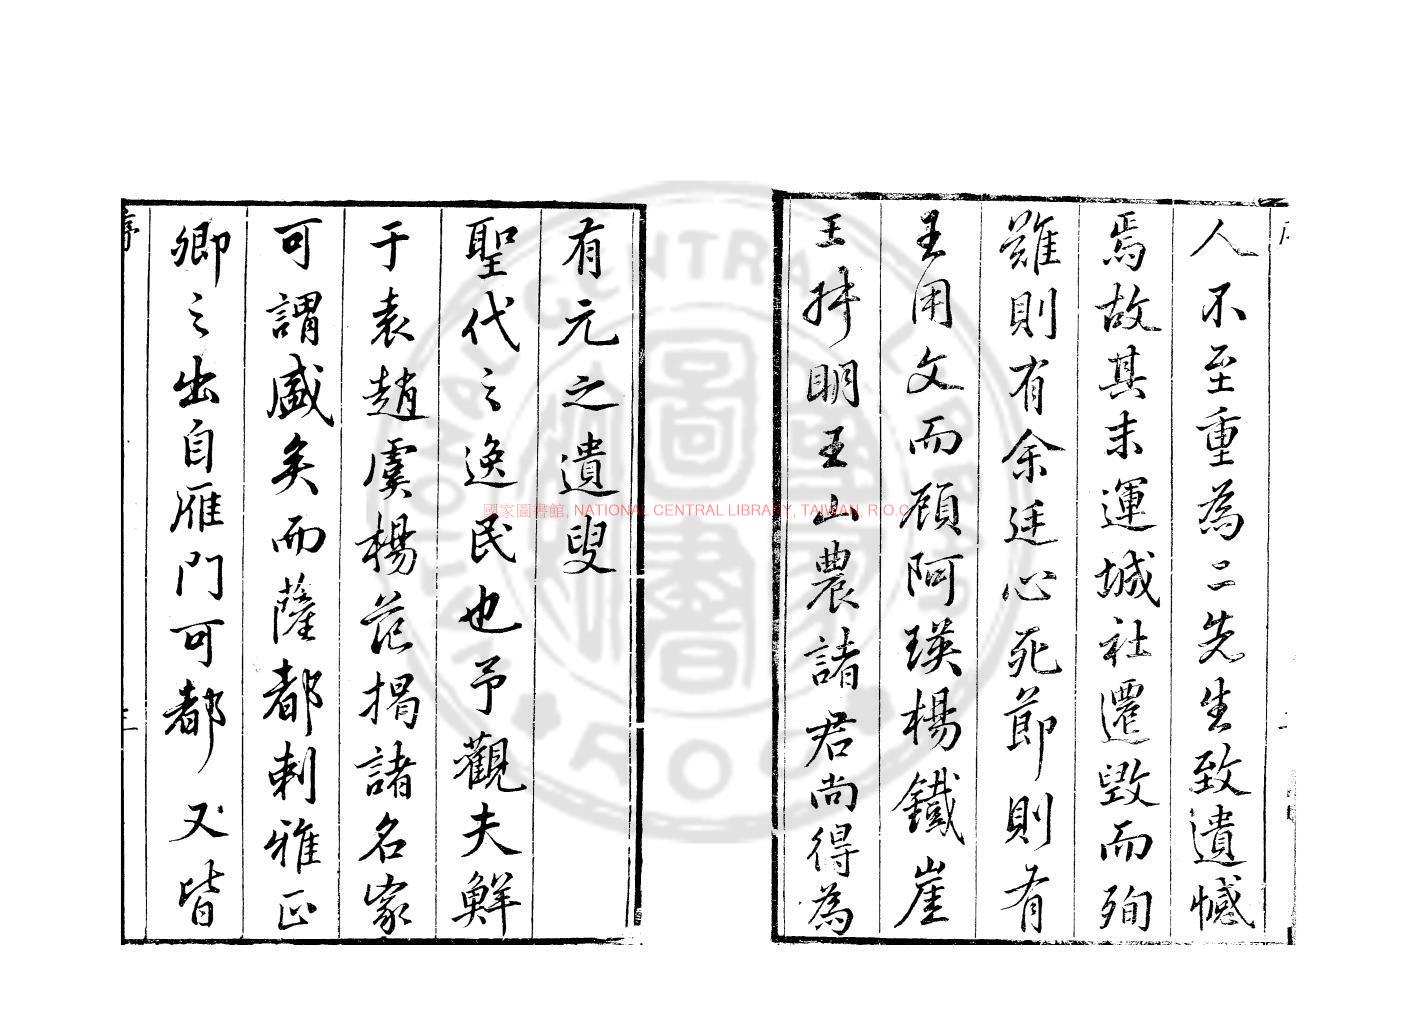 人不至重為二先生致遺憾
焉故其末運城社遷毀而殉
難則有余廷心死節則有
王用文而顧阿瑛楊鐵崖
王明王山農諸君尚得為
有元之遺叟
聖代之逸民也予觀夫鮮
于袁趙虞楊范揭諸名家
可謂盛矣而薩都剌雅正
卿之出自雁門可都又皆
序
三
國家圖書館, NATIONAL CENTRAL LIBRARY, TAIWAN, R.O.C
NATIONAL CENTRAL LIBRARY
ROC
國家圖書館